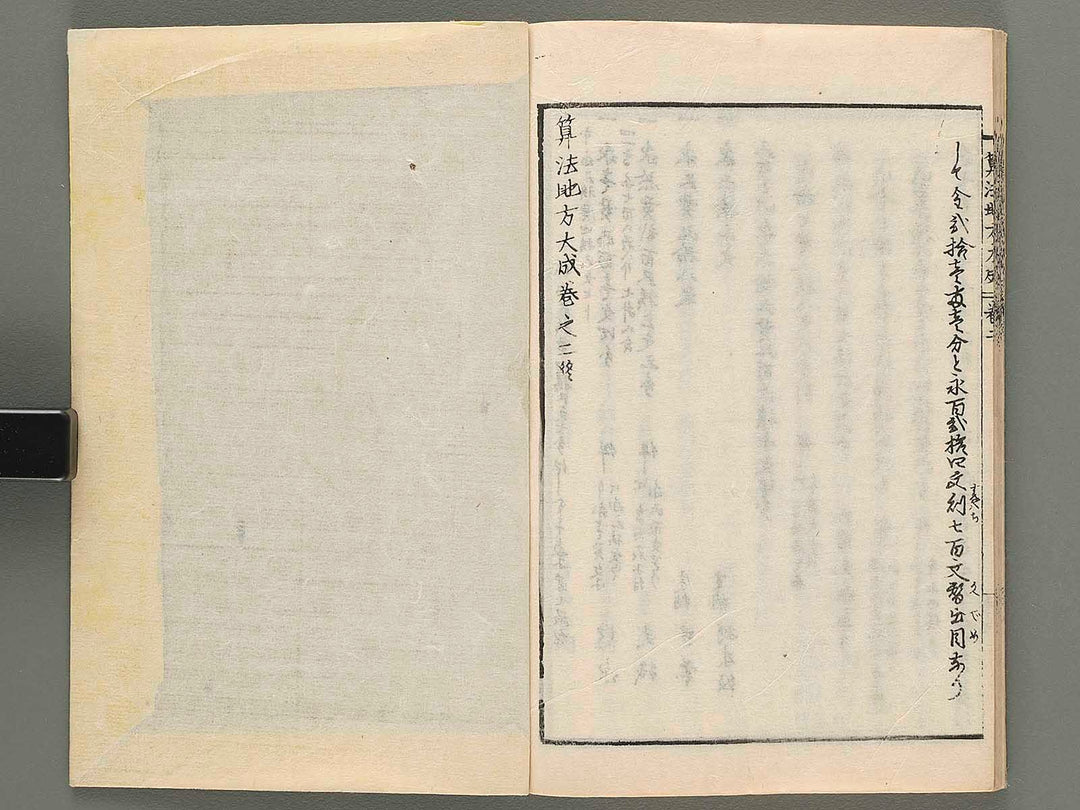 算法地方大成 巻二
して金弐拾壱両壱分と永百弐拾四文則七百文替出目あり
すなはち
かへ でめ
算法地方大成巻之二終